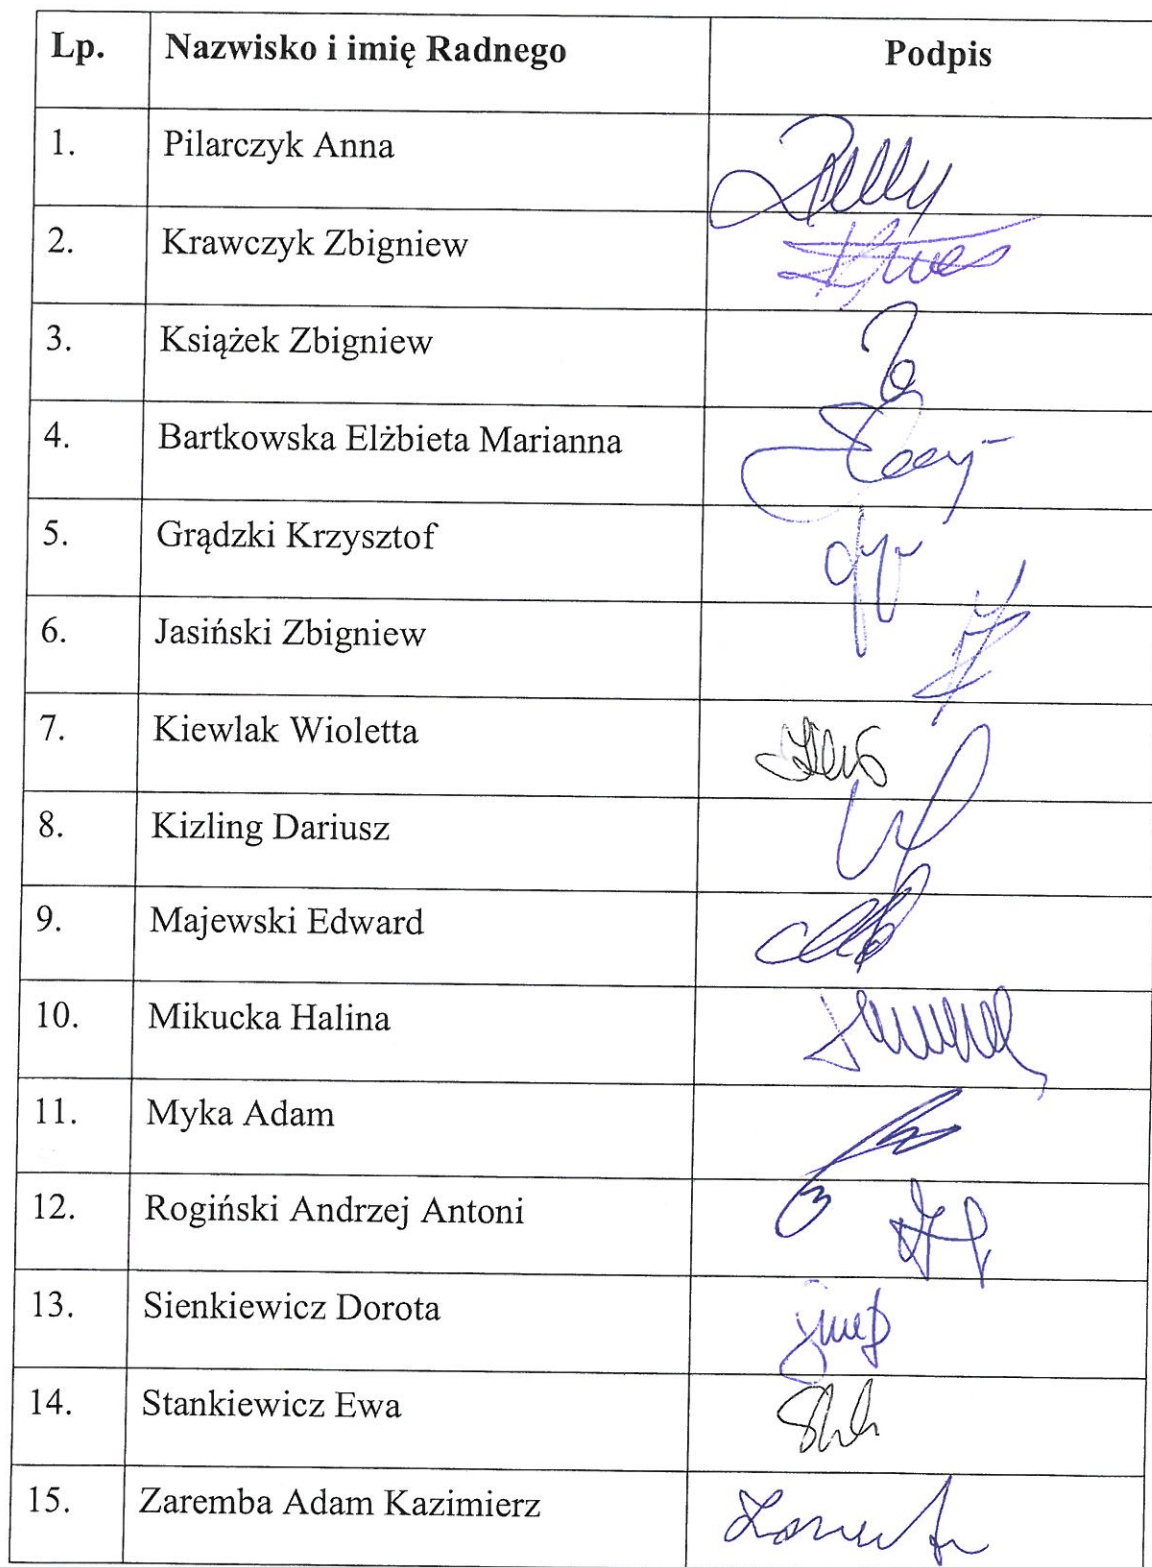 Lp. Nazwisko i imię Radnego Podpis
1. Pilarczyk Anna
2. Krawczyk Zbigniew
3. Książek Zbigniew
4. Bartkowska Elżbieta Marianna
5. Grądzki Krzysztof
6. Jasiński Zbigniew
7. Kiewlak Wioletta
8. Kizling Dariusz
9. Majewski Edward
10. Mikucka Halina
11. Myka Adam
12. Rogiński Andrzej Antoni
13. Sienkiewicz Dorota
14. Stankiewicz Ewa
15. Zaremba Adam Kazimierz